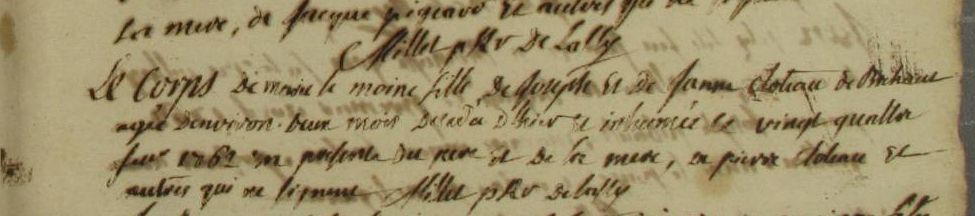 la mere, de jacque pigeard et autres qui ne
Millet ptre De Lally
Le Corps de marie le moine fille De Joseph Et De Janne Cloteau de
agée Denviron Deux mois Decedé D'hier a inhumée le vingt quattre
1762 en presence Du pere et De la mere, de pierre Cloteau Et
autres qui ne signent Millet ptre de Lally